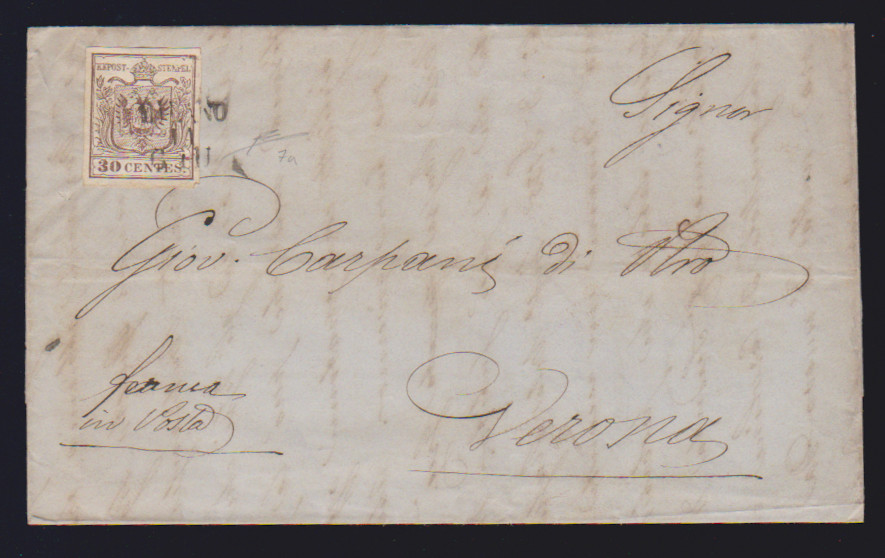 KKPOST-STEMPEL
30 CENTES.
7a
Signor
Giov. Carpani di Ptro
ferma
in Posta
Verona